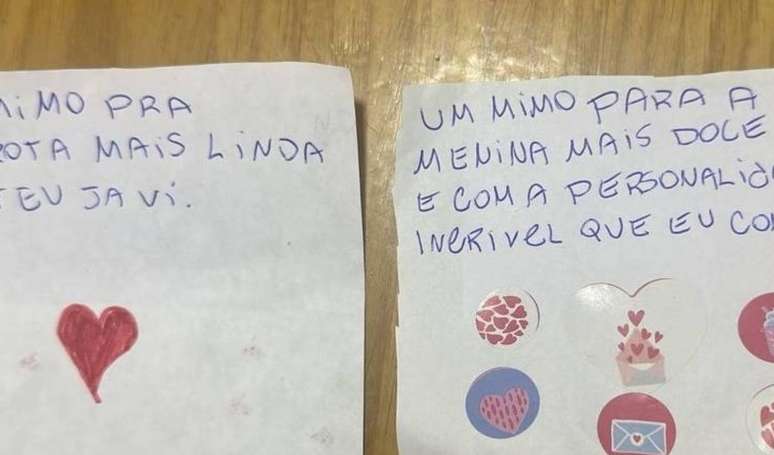 MIMO PRA
ROTA MAIS LINDA
EU JA VI.
UM MIMO PARA A
MENINA MAIS DOCE
E COM A
INCRIVEL QUE EU